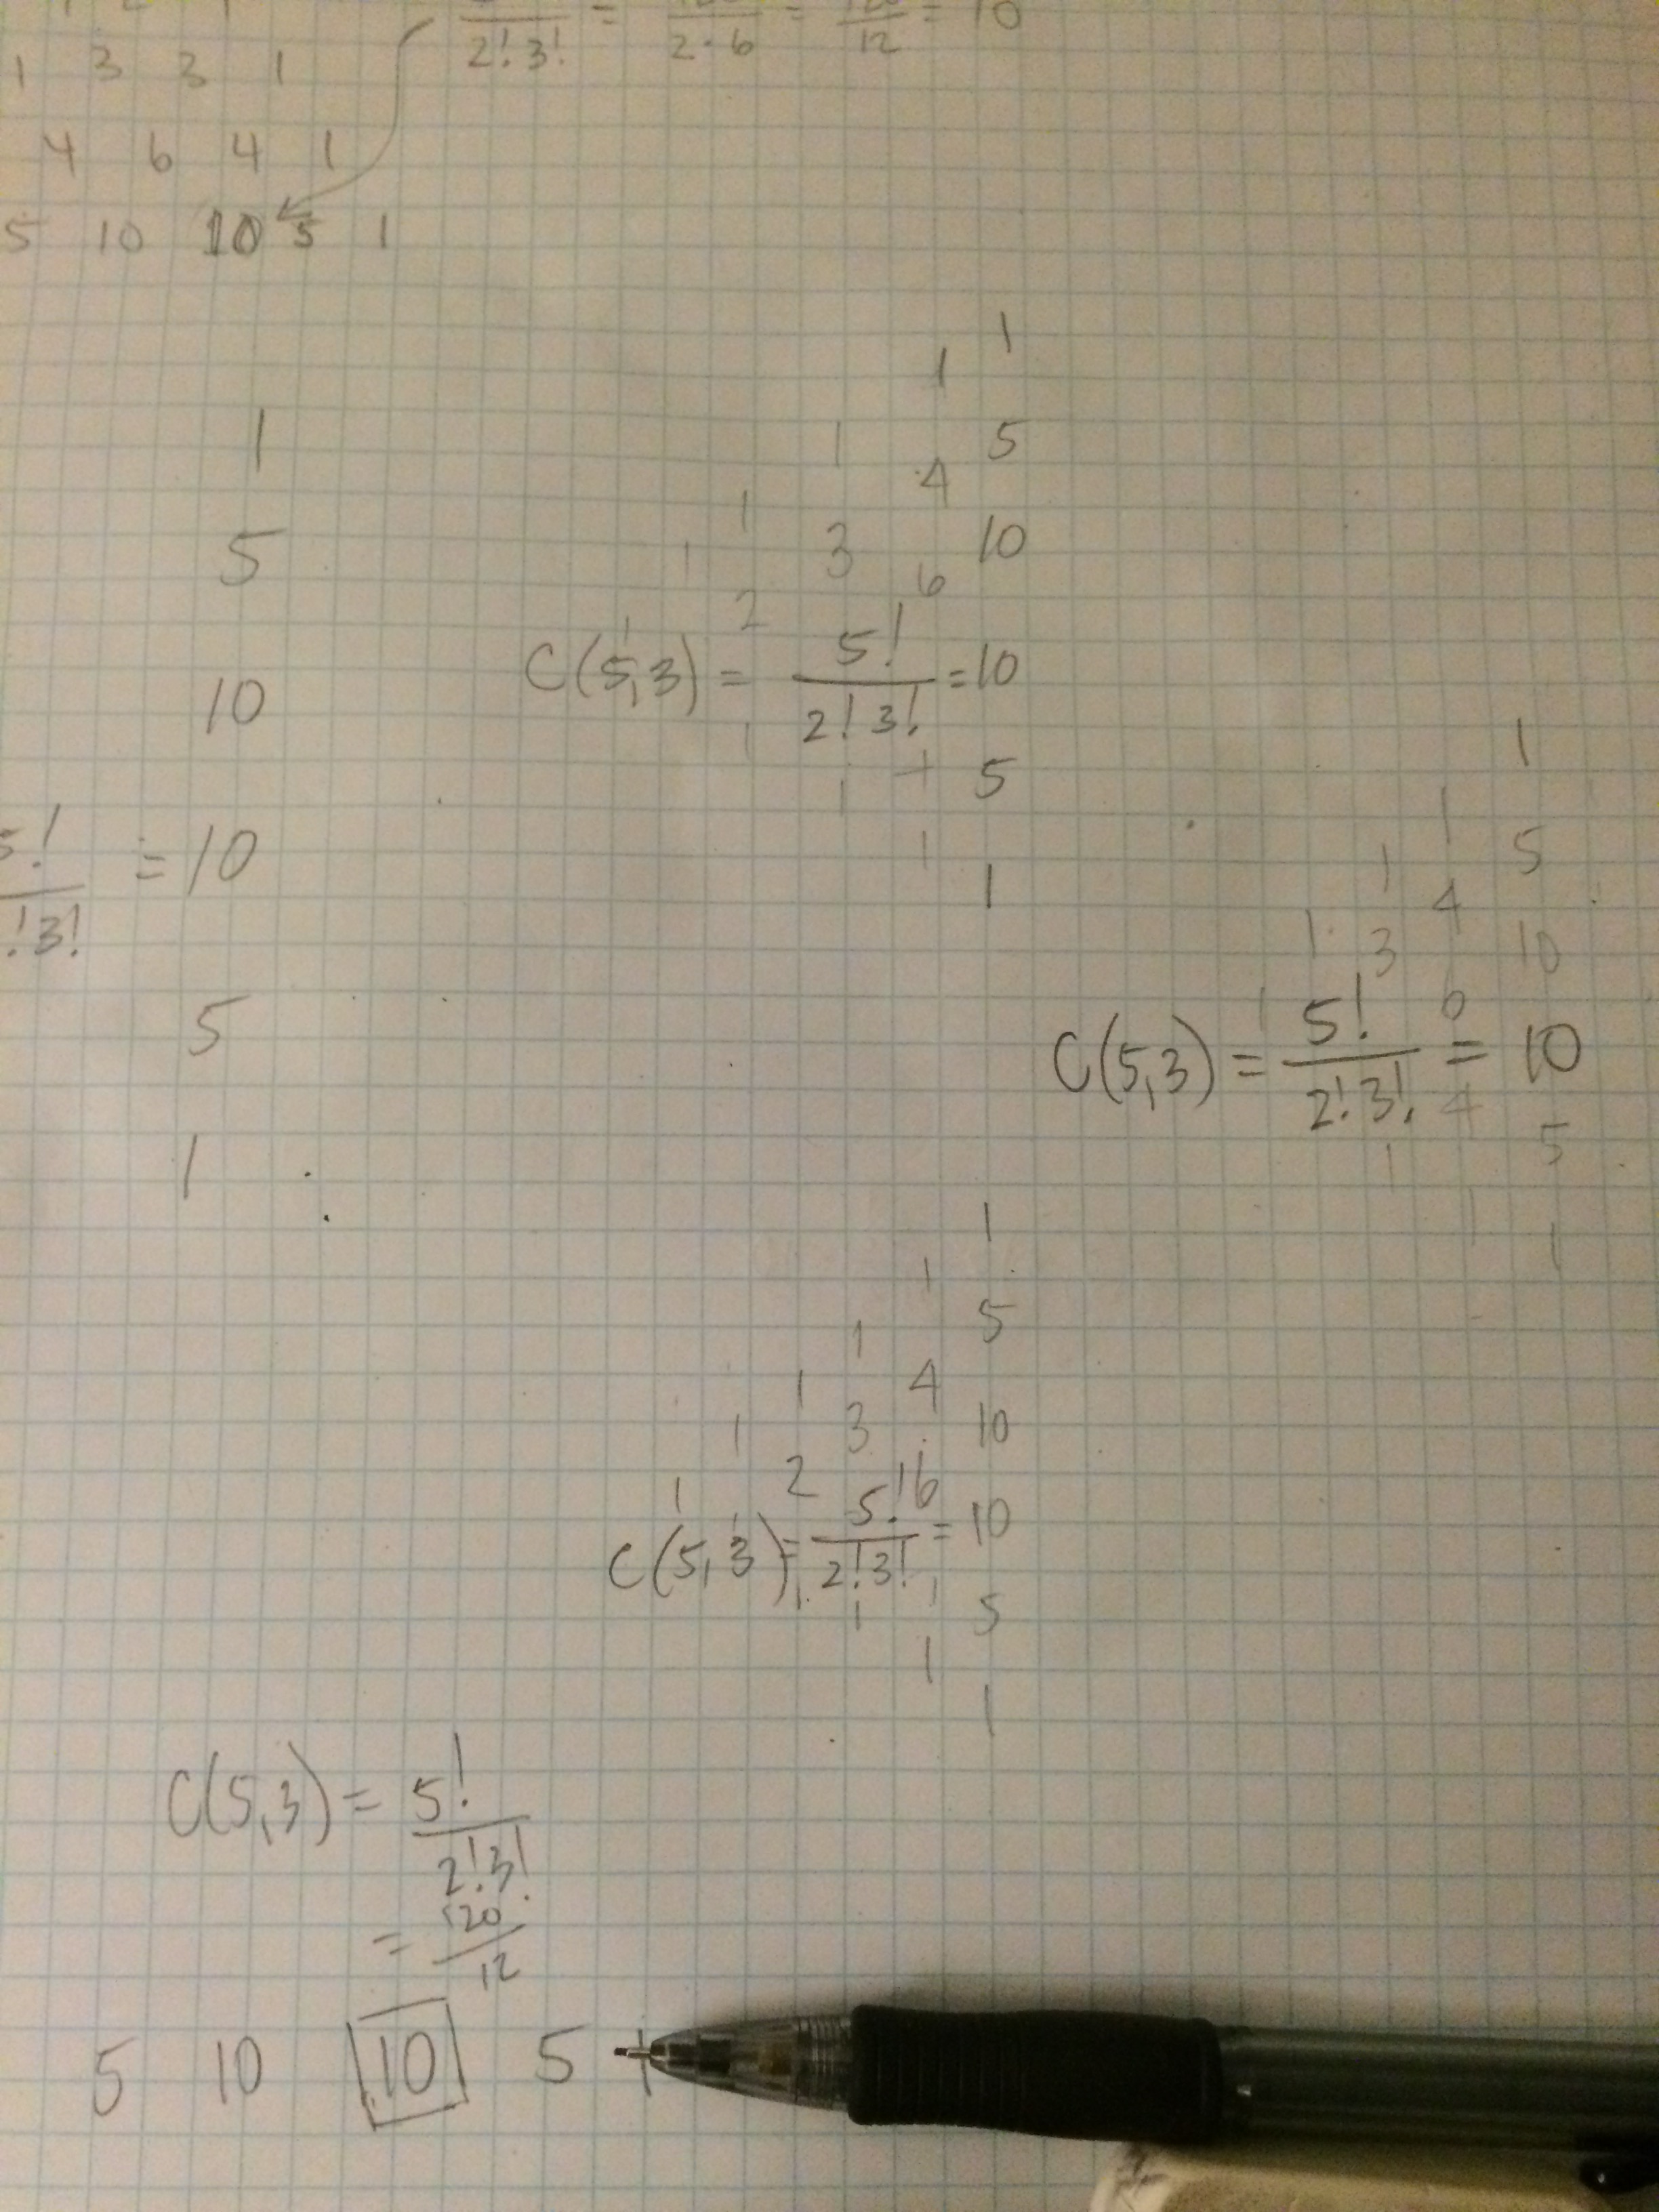 2!3! = 2·6 = 12 = 10
1 3 3 1
4 6 4 1
5 10 10 5 1
1
5
10
= 10
5
1
5!
!3!
1
1
1 5
4
1
1 3 10
6
2
1
C(5,3) = 5!/2!3! = 10
1
1 + 5
1
1
1
1
1 5
4
1 3 10
1 6
C(5,3) = 5!/2!3! = 10
4
1 5
1
1
1
1
1 5
1 4
1 3 10
2 6
1 1
C(5,3) = 5!/2!3! = 10
1 1 1 5
1
1
C(5,3) = 5!
2!3!
= 120
12
5 10 10 5 1